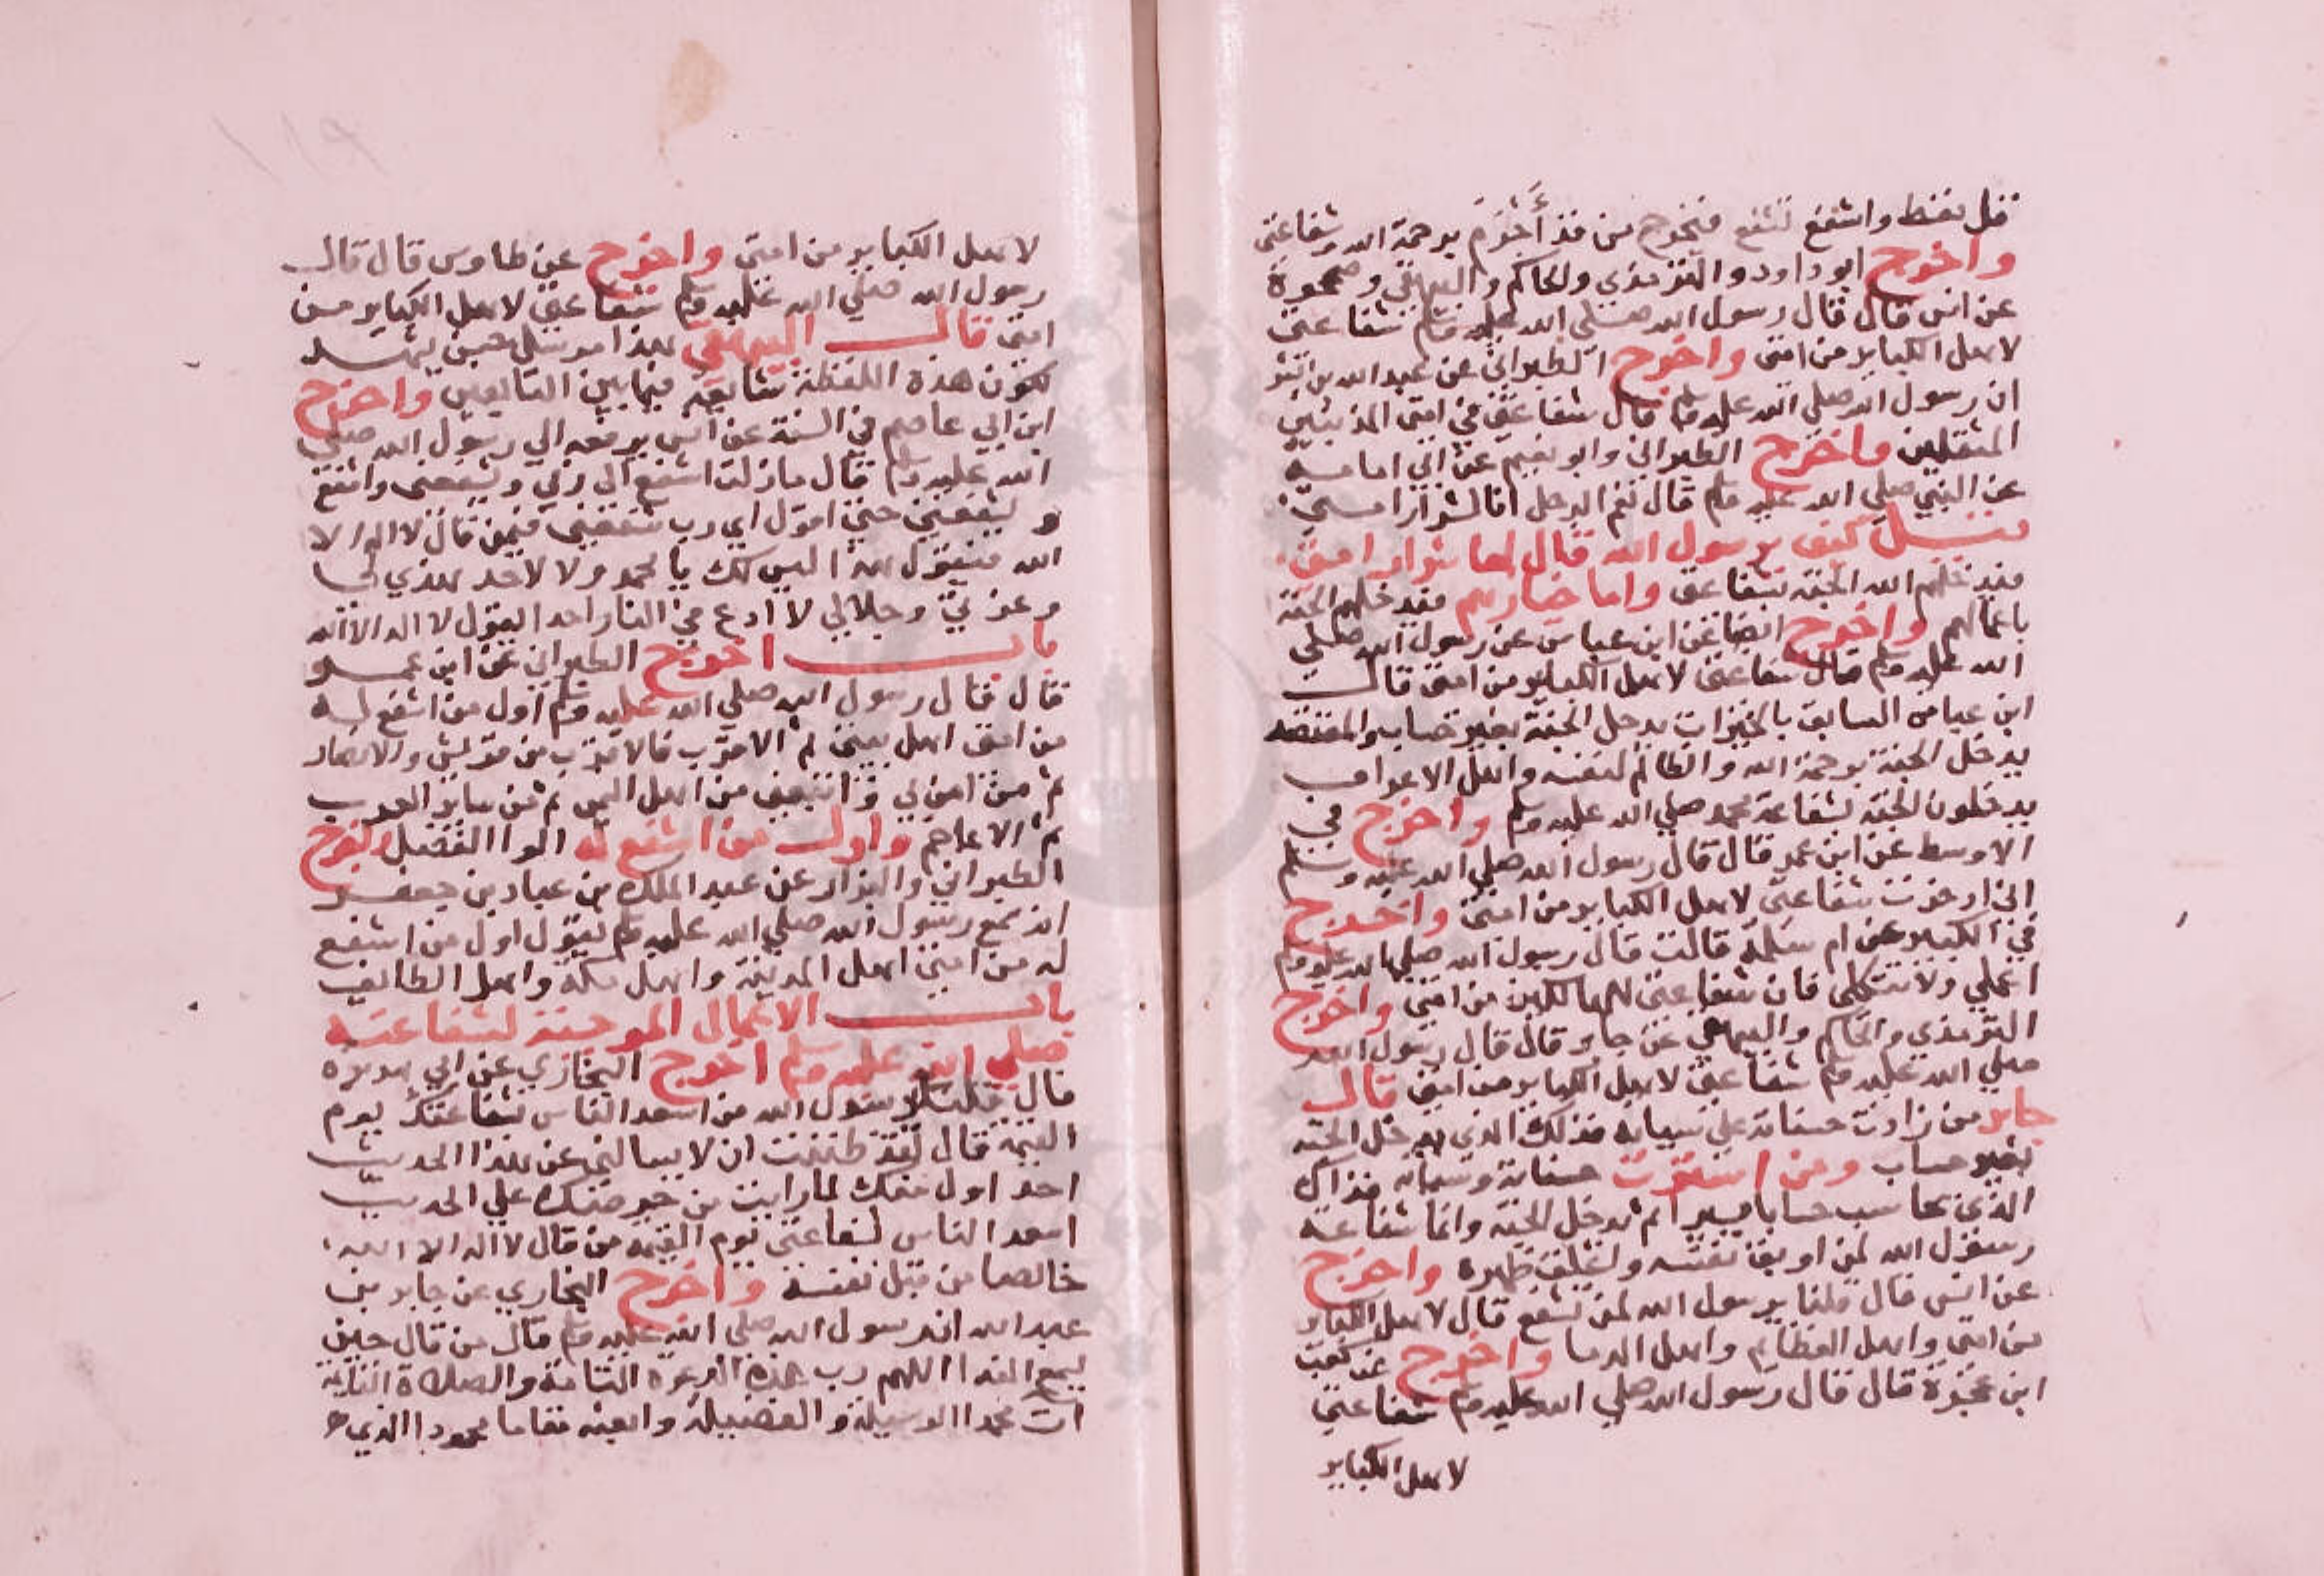 قل تعط واشفع تشفع فتخرج من قد أحترق برحمة الله وشفاعتى
واخرج ابو داود والترمذي والحاكم والبيهقي وصححوه
عن انس قال قال رسول الله صلى الله عليه وسلم شفاعتى
لاهل الكباير من امتى واخرج الطبراني عن عبد الله بن بشر
ان رسول الله صلى الله عليه وسلم قال شفاعتى في امتى المذنبين
المثقلين واخرج الطبراني وابو نعيم عن ابي امامة
عن النبي صلى الله عليه وسلم قال نعم الرجل انا لشرار امتي
كيف يرسول الله قال اما شرار امتى
فيدخلهم الله الجنة بشفاعتى واما خيارهم فيدخلهم الجنة
باعمالهم واخرج ايضا عن ابن عباس عن رسول الله صلى
الله عليه وسلم قال شفاعتى لاهل الكباير من امتى قال
ابن عباس السابق بالخيرات يدخل الجنة بغير حساب والمقتصد
يدخل الجنة برحمة الله والظالم لنفسه واهل الاعراف
يدخلون الجنة بشفاعة محمد صلى الله عليه وسلم واخرج في
الاوسط عن ابن عمر قال قال رسول الله صلى الله عليه وسلم
اني ادخرت شفاعتى لاهل الكباير من امتى واخرج
في الكبير عن ام سلمة قالت قال رسول الله صلى الله عليه وسلم
اعملي ولا تتكلى فان شفاعتى للهالكين من امتى واخرج
الترمذي والحاكم والبيهقي عن جابر قال قال رسول الله
صلى الله عليه وسلم شفاعتى لاهل الكباير من امتى قال
جابر من زادت حسناته على سيياته فذلك الذى يدخل الجنة
بغير حساب ومن استوت حسناته وسيياته فذاك
الذي يحاسب حسابا يسيرا ثم يدخل الجنة وانما شفاعة
رسول الله لمن اوبق نفسه واغلق ظهره واخرج
عن انس قال قلنا يرسول الله لمن تشفع قال لاهل الكباير
من امتى واهل العظايم واهل الدما واخرج عن كعب
ابن عجرة قال قال رسول الله صلى الله عليه وسلم شفاعتى
لاهل الكباير
لاهل الكباير من امتى واخرج عن طاوس قال قال
رسول الله صلى الله عليه وسلم شفاعتى لاهل الكباير من
امتى قال البيهقي هذا مرسل حسن يشهد
لكون هذه اللفظة شايعة فيما بين التابعين واخرج
ابن ابي عاصم في السنة عن انس يرفعه الى رسول الله صلى
الله عليه وسلم قال مازلت اشفع الى ربي ويشفعنى واشفع
ويشفعني حتى اقول اي رب شفعنى فيمن قال لا اله الا
الله فيقول هذا ليس لك يا محمد ولا لاحد هذي لي
وعزتي وجلالي لا ادع في النار احدا يقول لا اله الا الله
باب اخرج الطبراني عن ابن عمر
قال قال رسول الله صلى الله عليه وسلم اول من اشفع له
من امتى اهل بيتى ثم الاقرب فالاقرب من قريش والانصار
ثم من امن بي واتبعنى من اهل اليمن ثم من ساير العرب
ثم الاعاجم واول من اشفع له الوا الفضل واخرج
الطبراني والبزار عن عبد الملك بن عباد بن جعفر
انه سمع رسول الله صلى الله عليه وسلم يقول اول من اشفع
له من امتى اهل المدينة واهل مكة واهل الطايف
باب الاعمال الموجبة لشفاعته
صلى الله عليه وسلم اخرج البخاري عن ابي هريرة
قال قلت يرسول الله من اسعد الناس بشفاعتك يوم
القيمة قال لقد ظننت ان لا يسالني عن هذا الحديث
احد اول منك لما رايت من حرصك على الحديث
اسعد الناس بشفاعتى يوم القيمة من قال لا اله الا الله
خالصا من قبل نفسه واخرج البخاري عن جابر بن
عبد الله ان رسول الله صلى الله عليه وسلم قال من قال حين
يسمع الندا اللهم رب هذه الدعوة التامة والصلاة القايمة
ات محمدا الوسيلة والفضيلة وابعثه مقاما محمودا الذي